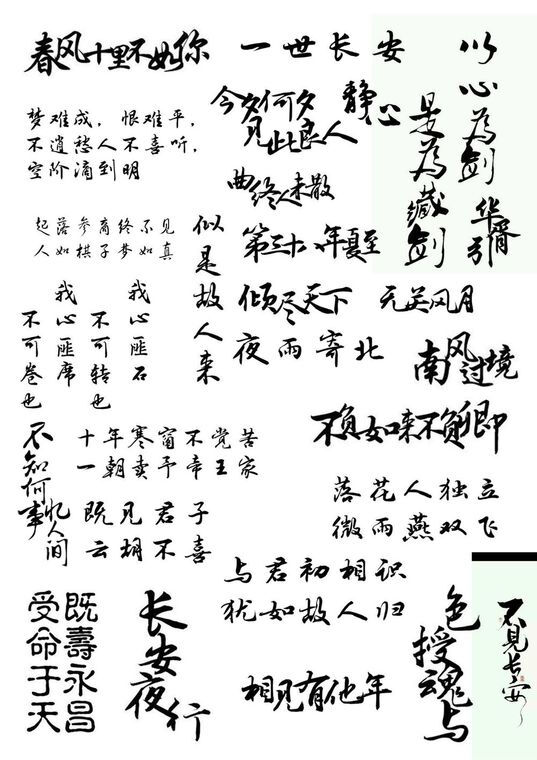 春风十里不如你
一世长安
以心为剑
是为藏剑
华胥引
今夕何夕
见此良人
静心
梦难成，恨难平，
不道愁人不喜听，
空阶滴到明
曲终人未散
起落参商终不见
人如棋子梦如真
似是故人来
第三十八年夏至
我心匪石
不可转也
我心匪席
不可卷也
倾尽天下
无关风月
夜雨寄北
南风过境
不负如来不负卿
不知何事
忆人间
十年寒窗不觉苦
一朝卖予帝王家
既见君子
云胡不喜
落花人独立
微雨燕双飞
与君初相识
犹如故人归
受命于天
既壽永昌
长安夜行
相见有他年
色授魂与
不見长安